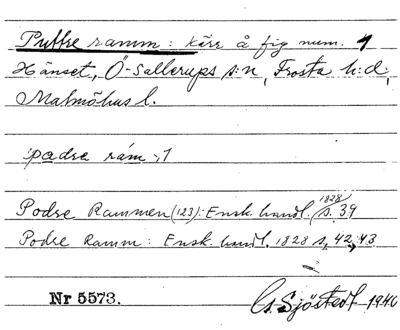 Puttre ramm: kärr å fig num. 1
Hänset, Ö-Sallerups s:n, Frosta h:d;
Malmöhus l.
:padre rám:,1
Podre Rammen (123): Ensk. handl. 1828 s. 39
Podre Ramm: Ensk. handl. 1828 s. 42, 43
Nr 5573.
G. Sjöstedt 1946